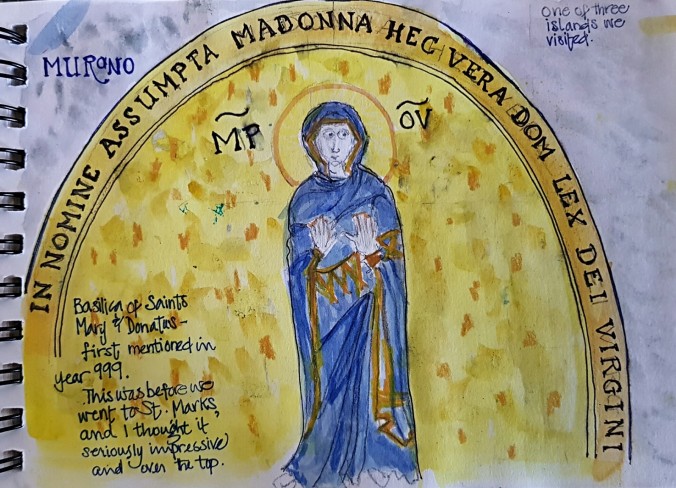 MURANO
one of three
islands we
visited.
IN NOMINE ASSUMPTA MADONNA HEC VERA DOM LEX DEI VIRGINI
MP OV
Basilica of Saints
Mary & Donatus -
first mentioned in
year 999.
This was before we
went to St. Marks,
and I thought it
seriously impressive
and over the top.